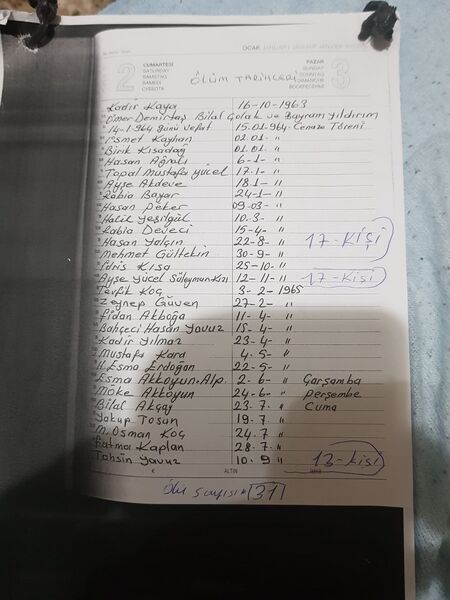 OCAK
2
CUMARTESİ
SATURDAY
SAMSTAG
SAMEDI
ÖLÜM TARİHLERİ
PAZAR
SUNDAY
SONNTAG
DIMANCHE
3
Kadir Kaya 16-10-1963
Ömer Demirtaş Bilal Golak ve Bayram Yıldırım
14-1-1964 günü vefat 15.01-1964. Cenaze Töreni
İsmet Kayhan 02.01. "
Birik Kısadağ 01.01. "
Hasan Ağralı 6-1- "
Topal Mustafa Yücel 17.1- "
Ayşe Akdeve 18.1- "
Rabia Bayar 24-1- "
Hasan Peker 09-03- "
Halil Yeşilgül 10.3- "
Rabia Deveci 15-4- "
Hasan Yalçın 22-8- " 17-KİŞİ
Mehmet Gültekin 30-9- "
İdris Kısa 25-10- "
Ayşe Yücel Süleyman Kızı 12-11- " 17-Kişi
Tevfik Koç 3-2-1965
Zeynep Güven 27-2- "
Fidan Akboğa 11-4- "
Bahçeci Hasan Yavuz 15-4- "
Kadir Yılmaz 23-4- "
Mustafa Kara 4-5- "
H. Esma Erdoğan 22-5- "
Esma Akkoyun-Alp. 2-6- " Çarşamba
Möke Akkoyun 24-6- " Perşembe
Bilal Akçay 23-7. " Cuma
Yakup Tosun 19-7. "
M. Osman Koç 24.7 "
Fatma Kaplan 28-7. "
Tahsin Yavuz 10.9 " 13-Kişi
ALTIN
Ölü sayısı 31